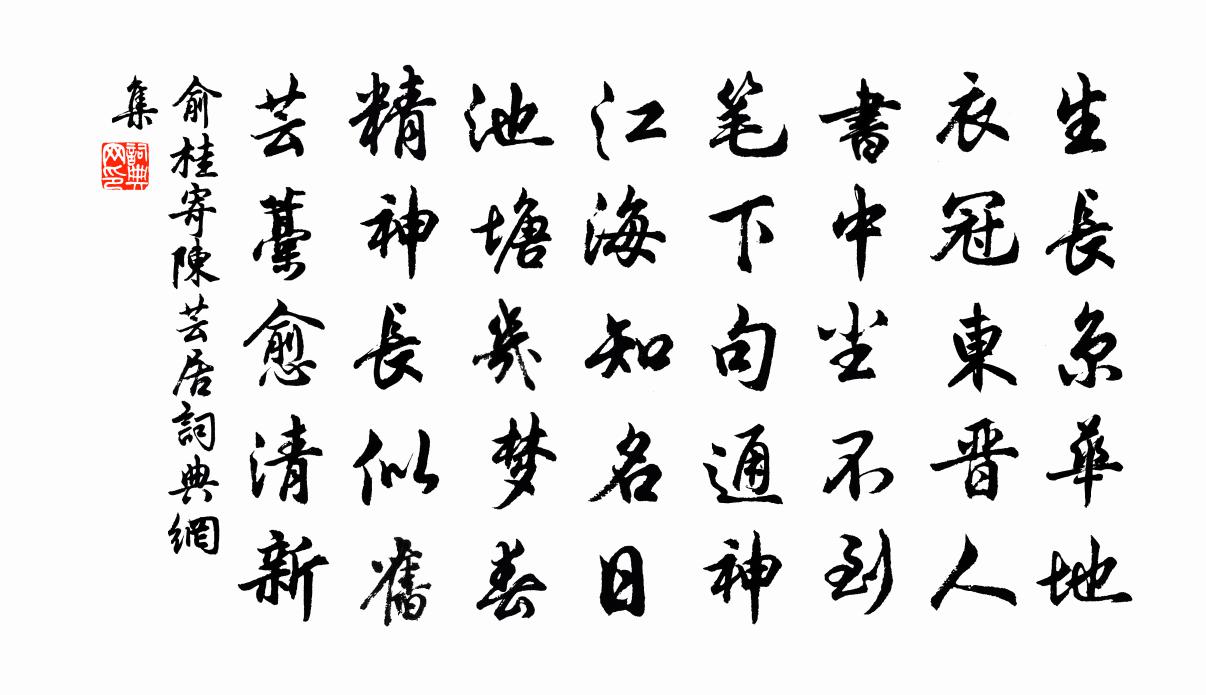 生長京華地
衣冠東晋人
書中尘不到
笔下句通神
江海知名日
池塘幾梦春
精神長似舊
芸藁愈清新
俞桂寄陳芸居詞典網
集
詞典
网印